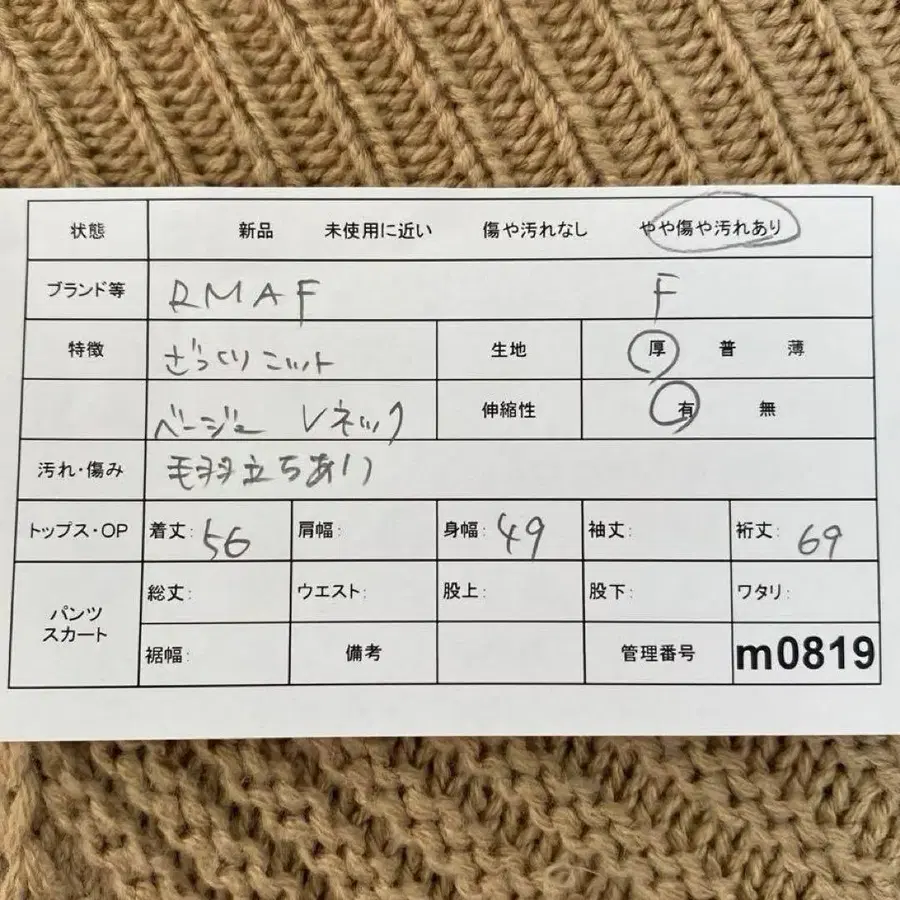 状態 新品 未使用に近い 傷や汚れなし やや傷や汚れあり
ブランド等 RMAF F
特徴 ざっくりニット 生地 厚 普 薄
ベージュ Vネック 伸縮性 有 無
汚れ・傷み 毛羽立ちあり
トップス・OP 着丈: 56 肩幅: 身幅: 49 袖丈: 裄丈: 69
パンツ
スカート
総丈: ウエスト: 股上: 股下: ワタリ:
裾幅: 備考 管理番号 m0819